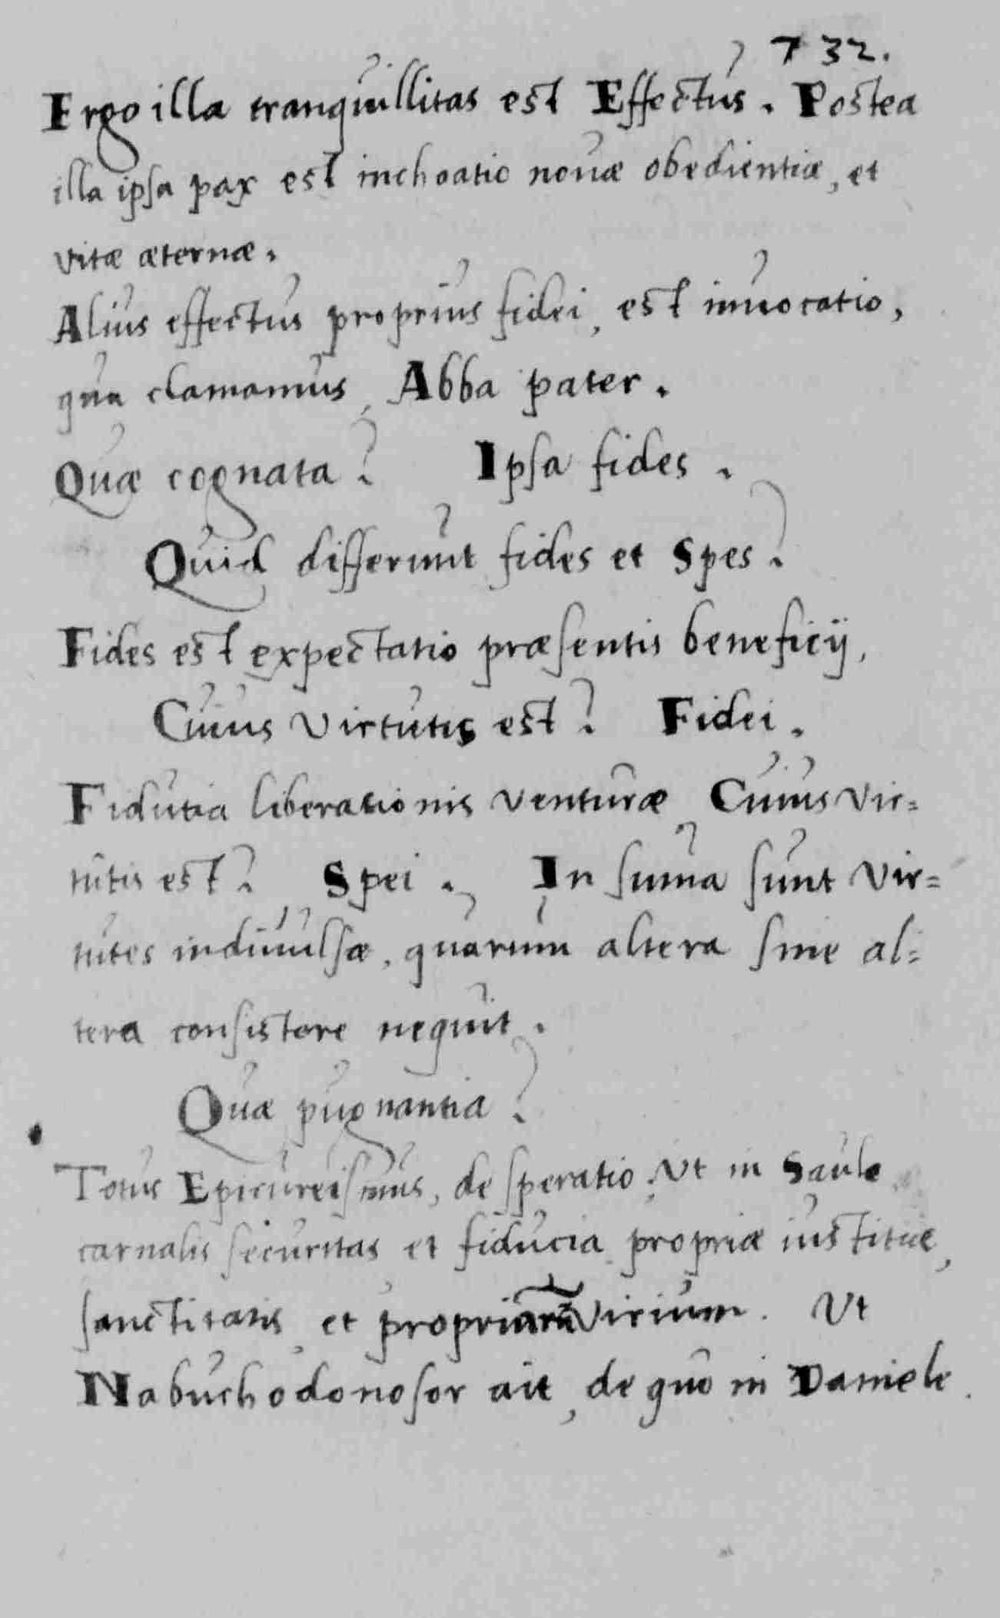 732.
Ergo illa tranquillitas est Effectus. Postea
illa ipsa pax est inchoatio novæ obedientiæ, et
vitæ æternæ.
Alius effectus proprius fidei, est invocatio,
qua clamamus, Abba pater.
Quæ cognata? Ipsa fides.
Quid differunt fides et Spes?
Fides est expectatio præsentis beneficij,
Cuius virtutis est? Fidei.
Fidutia liberationis venturæ, Cuius vir=
tutis est? Spei. In suma sunt vir=
tutes indivulsæ, quarum altera sine al=
tera consistere nequit.
Quæ pugnantia?
Totus Epicureismus, desperatio. Ut in Saule
carnalis securitas et fiducia propriæ iustitiæ,
sanctitatis, et propriarũ virium. Ut
Nabuchodonosor ait, de quo in Daniele.